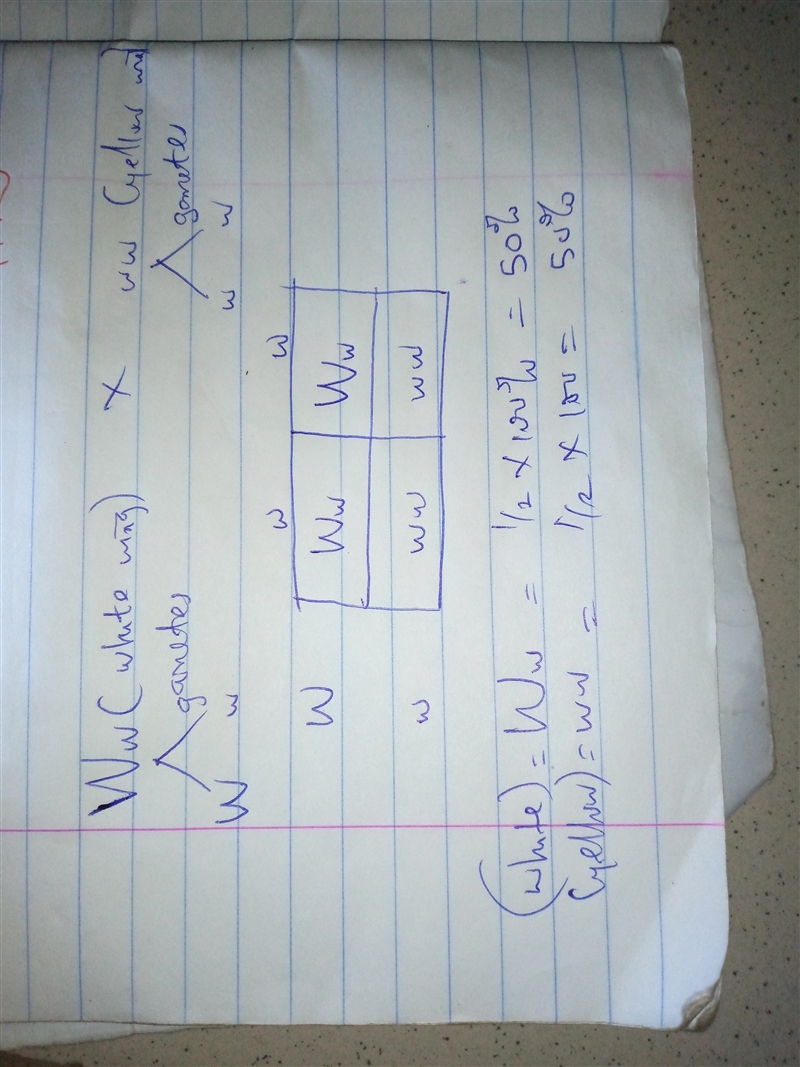 Ww (white wing) X ww (yellow wing)
gametes gametes
W w w w
w w
W Ww Ww
w ww ww
(white) = Ww = 1/2 X 100% = 50%
(yellow) = ww = 1/2 X 100 = 50%